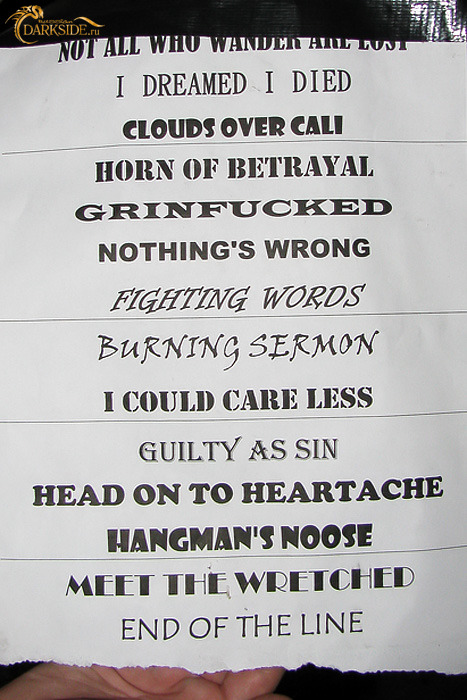 DARKSIDE.ru
NOT ALL WHO WANDER ARE LOST
I DREAMED I DIED
CLOUDS OVER CALI
HORN OF BETRAYAL
GRINFUCKED
NOTHING'S WRONG
FIGHTING WORDS
BURNING SERMON
I COULD CARE LESS
GUILTY AS SIN
HEAD ON TO HEARTACHE
HANGMAN'S NOOSE
MEET THE WRETCHED
END OF THE LINE